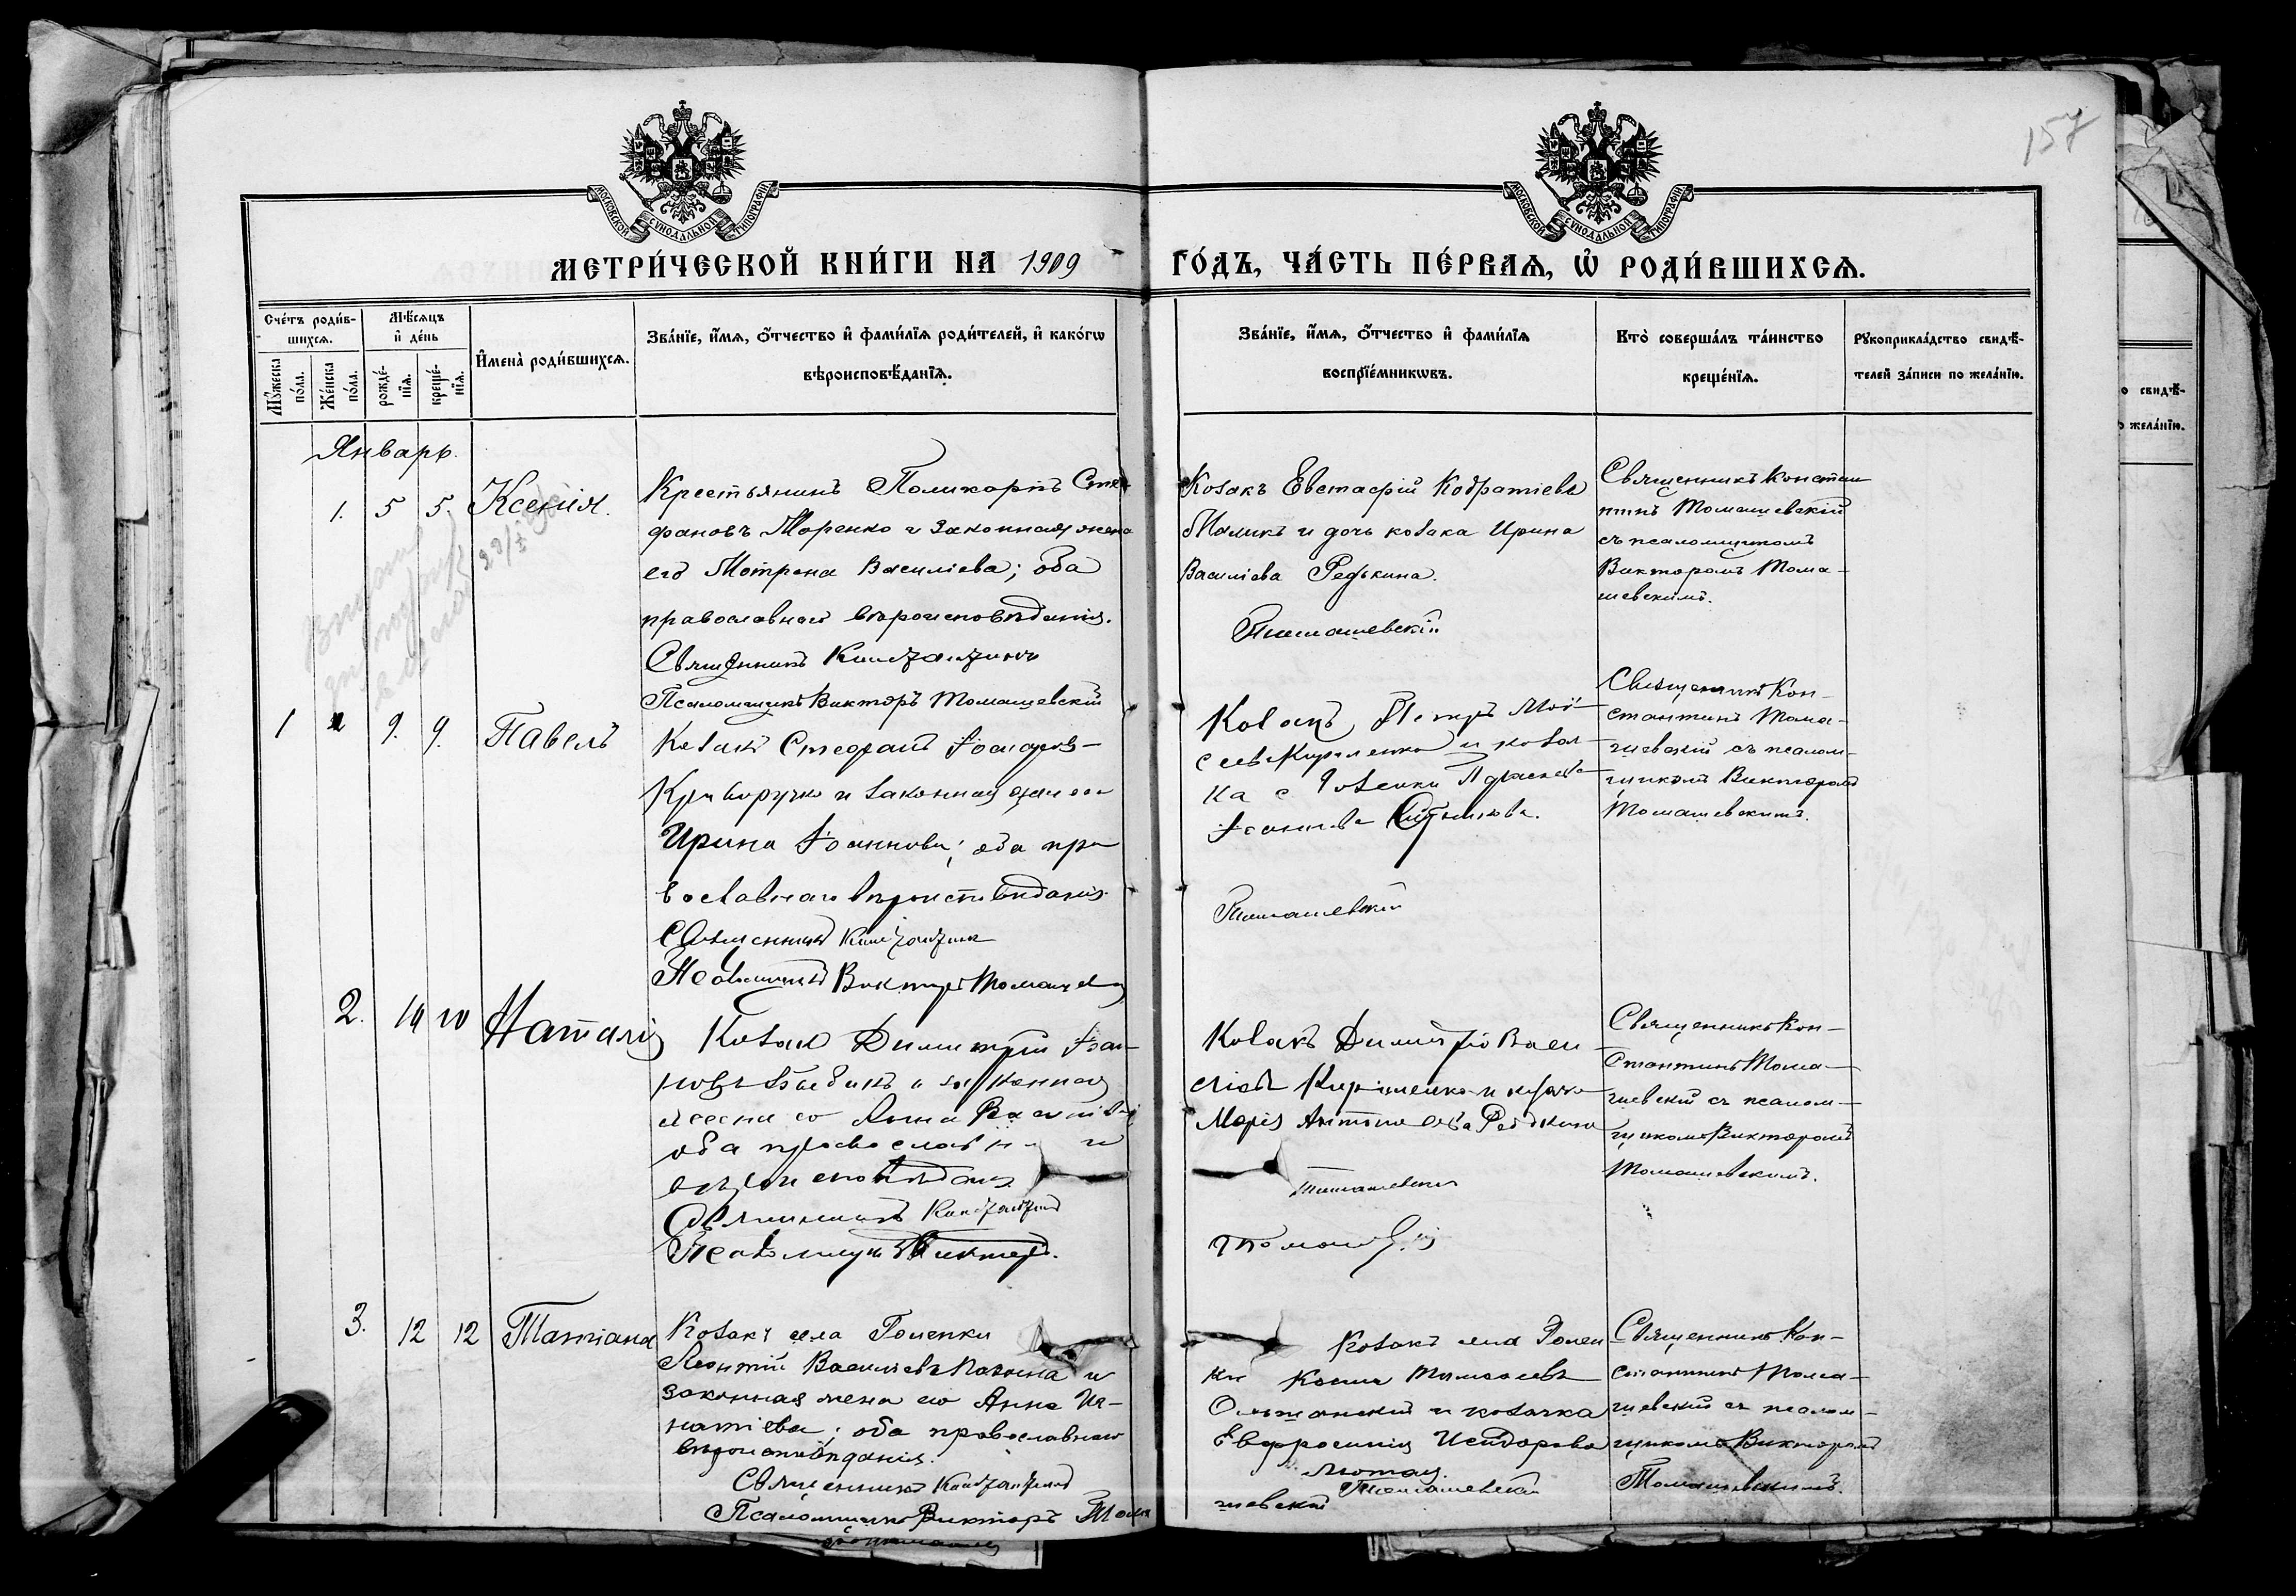 157
МОСКОВСКОЙ СѴНОДАЛЬНОЙ ТИПОГРАФІИ
МОСКОВСКОЙ СѴНОДАЛЬНОЙ ТИПОГРАФІИ
МЕТРИ́ЧЕСКОЙ КНИ́ГИ НА 1909 ГО́ДЪ, ЧА́СТЬ ПЕ́РВАѦ, Ѡ҆ РОДИ́ВШИХСѦ.
Сче́тъ роди́в-
шихсѧ.
Мꙋ́жеска по́ла.
Же́нска по́ла.
Мѣ́сѧцъ
и҆ де́нь
рожде́-
нїѧ.
креще́-
нїѧ.
И҆мена̀ роди́вшихсѧ.
Зва́нїе, и҆́мѧ, ѻ҆́тчество и҆ фами́лїѧ роди́телей, и҆ како́гѡ
вѣроисповѣ́данїѧ.
Зва́нїе, и҆́мѧ, ѻ҆́тчество и҆ фами́лїѧ
воспрїе́мникѡвъ.
Кто̀ соверша́лъ та́инство
креще́нїѧ.
Рꙋкоприкла́дство свидѣ́-
телей за́писи по жела́нїю.
Январь.
1. 5 5. Ксенія.
Крестьянинъ Поликарпъ Сте-
фановъ Моренко и законная жена
его Мотрона Василіева; оба
православнаго вѣроисповѣданія.
Священникъ Константинъ
Псаломщикъ Викторъ Томашевскій
Козакъ Евстафій Кодратіевъ
Маликъ и дочь козака Ирина
Василіева Редькина.
Томашевскій
Священникъ Констан
тинъ Томашевскій
съ псаломщикомъ
Викторомъ Тома-
шевскимъ.
1 9. 9. Павелъ
Козакъ Стефанъ Іоанновъ
Криворучко и законная жена его
Ирина Іоаннова; оба пра
вославнаго вѣроисповѣданія
Священникъ Константинъ
Псаломщикъ Викторъ Томашев
Козакъ Петръ Мой-
сеевъ Кириленко и козач-
ка с
Іоаннова
Томашевскій
Священникъ Кон-
стантинъ Тома-
шевскій съ псалом-
щикомъ Викторомъ
Томашевскимъ.
2. 10 10 Наталія
Козакъ Димитрій Іоан-
новъ и законная
жена его Анна Василіева
оба православнаго
вѣроисповѣданія
Священникъ Константинъ
Псаломщикъ Викторъ.
Козакъ Димитрій Васи
ліевъ Кириленко и козачка
Марія Редькина
Томашевскій
Священникъ Кон-
стантинъ Тома-
шевскій съ псалом-
щикомъ Викторомъ
Томашевскимъ.
3. 12 12 Татіана
Козакъ села Роменки
Леонтій Василіевъ и
законная жена его Анна Иг-
натіева; оба православнаго
вѣроисповѣданія.
Священникъ Константинъ
Псаломщикъ Викторъ Тома
шевскій
Козакъ села Ромен
ки Тимофеевъ
Ольшанскій и козачка
Евфросинія Исидорова
Лютая.
Томашевскій
Священникъ Кон-
стантинъ Тома-
шевскій съ псалом-
щикомъ Викторомъ
Томашевскимъ.
о свидѣ́-
жела́нїю.